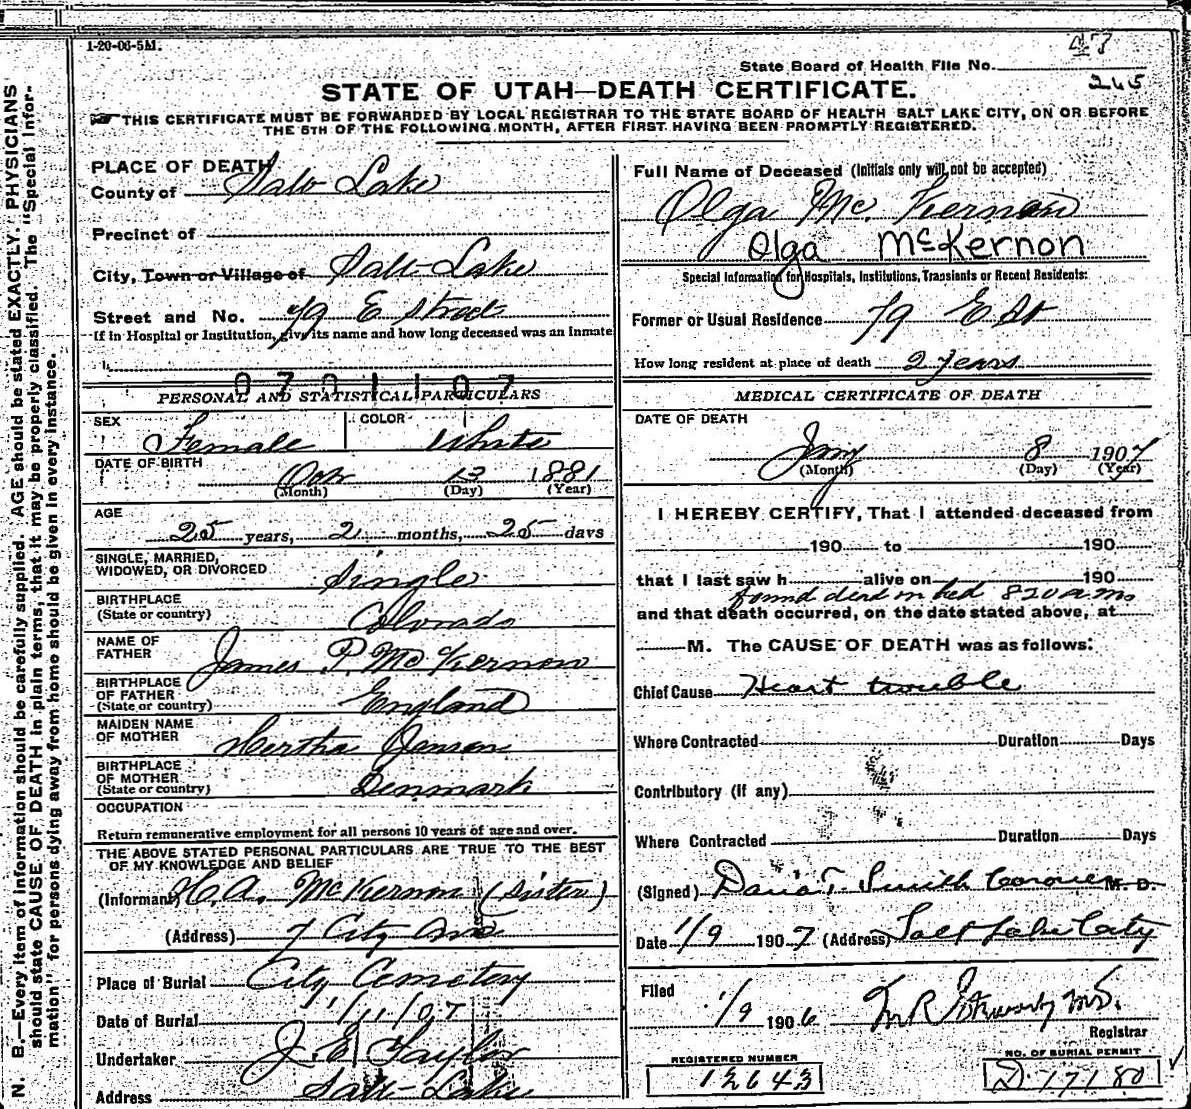 N. B.—Every item of information should be carefully supplied. AGE should be stated EXACTLY. PHYSICIANS
should state CAUSE OF DEATH in plain terms, that it may be properly classified. The "Special Infor-
mation" for persons dying away from home should be given in every instance.
1-20-06-5M.
State Board of Health File No.
265
STATE OF UTAH—DEATH CERTIFICATE.
THIS CERTIFICATE MUST BE FORWARDED BY LOCAL REGISTRAR TO THE STATE BOARD OF HEALTH SALT LAKE CITY, ON OR BEFORE
THE 5TH OF THE FOLLOWING MONTH, AFTER FIRST HAVING BEEN PROMPTLY REGISTERED.
PLACE OF DEATH
County of Salt Lake
Precinct of
City, Town or Village of Salt Lake
Street and No. 79 E Street
If in Hospital or Institution, give its name and how long deceased was an inmate
0701107
PERSONAL AND STATISTICAL PARTICULARS
SEX Female COLOR White
DATE OF BIRTH Oct 13 1881
(Month) (Day) (Year)
AGE
25 years, 2 months, 25 days
SINGLE, MARRIED,
WIDOWED, OR DIVORCED Single
BIRTHPLACE
(State or country) Colorado
NAME OF
FATHER James P. McKernon
BIRTHPLACE
OF FATHER
(State or country) England
MAIDEN NAME
OF MOTHER Hertha Jensen
BIRTHPLACE
OF MOTHER
(State or country) Denmark
OCCUPATION
Return remunerative employment for all persons 10 years of age and over.
THE ABOVE STATED PERSONAL PARTICULARS ARE TRUE TO THE BEST
OF MY KNOWLEDGE AND BELIEF
(Informant) H. A. McKernon (sister)
(Address) 7 City Ave
Place of Burial City Cemetery
Date of Burial 1/11/07
Undertaker J. E. Taylor
Address Salt Lake
Full Name of Deceased (Initials only will not be accepted)
Olga Mc. Kernon
Olga McKernon
Special Information for Hospitals, Institutions, Transients or Recent Residents:
Former or Usual Residence 79 E St
How long resident at place of death 2 years
MEDICAL CERTIFICATE OF DEATH
DATE OF DEATH
Jany 8 1907
(Month) (Day) (Year)
I HEREBY CERTIFY, That I attended deceased from
190 to 190
that I last saw h alive on 190
found dead in bed 820 a.m.
and that death occurred, on the date stated above, at
M. The CAUSE OF DEATH was as follows:
Chief Cause Heart trouble
Where Contracted Duration Days
Contributory (if any)
Where Contracted Duration Days
(Signed) Dana T. Smith Coroner M. D.
Date 1/9 1907 (Address) Salt Lake City
Filed
1/9 1906 M.D.
Registrar
REGISTERED NUMBER
12643
NO. OF BURIAL PERMIT
D.17180